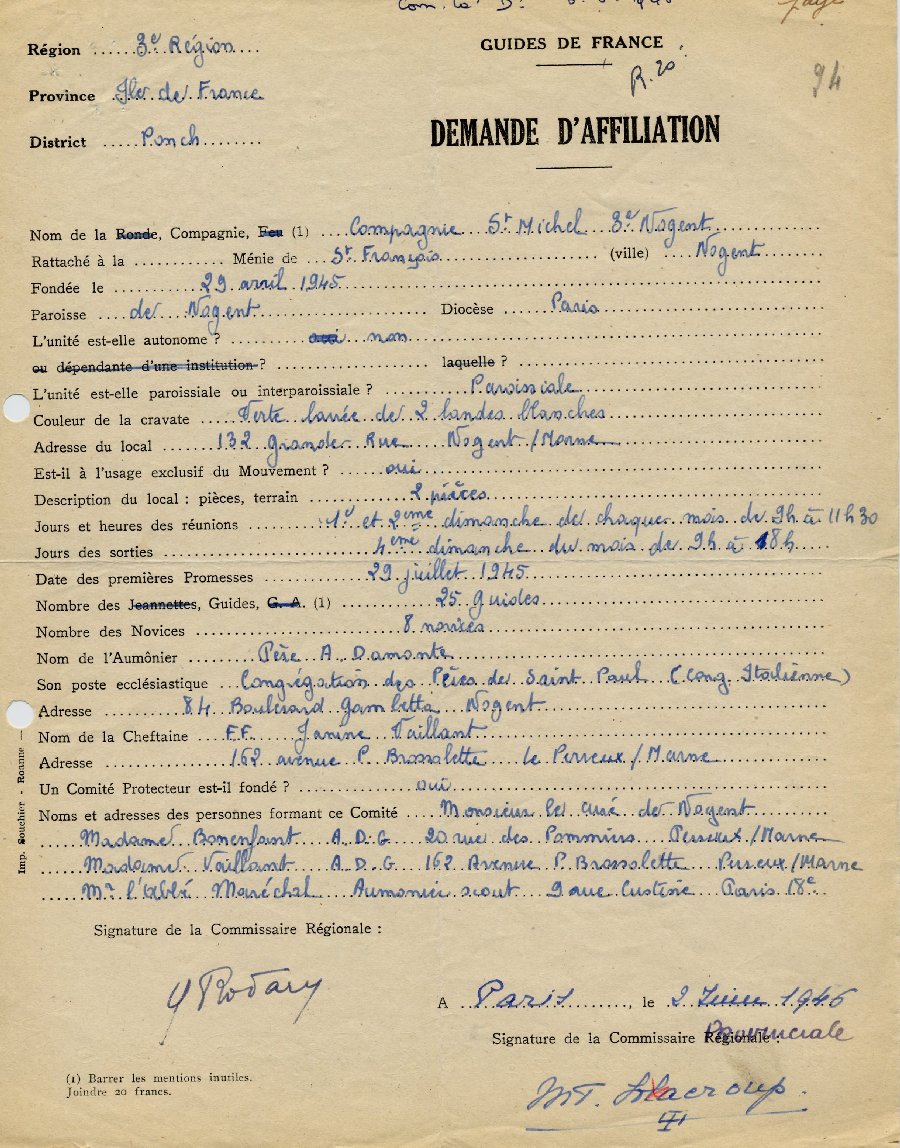 Région 3e Région
GUIDES DE FRANCE
R. 20
94
Province Ile de France
District Ponch
DEMANDE D'AFFILIATION
Nom de la Ronde, Compagnie, Feu (1) Compagnie St Michel 3e Nogent
Rattaché à la Ménie de St François (ville) Nogent
Fondée le 29 avril 1945
Paroisse de Nogent Diocèse Paris
L'unité est-elle autonome ? oui non
ou dépendante d'une institution ? laquelle ?
L'unité est-elle paroissiale ou interparoissiale ? Paroissiale
Couleur de la cravate Verte barrée de 2 bandes blanches
Adresse du local 132 Grande Rue Nogent/Marne
Est-il à l'usage exclusif du Mouvement ? oui
Description du local : pièces, terrain 2 pièces
Jours et heures des réunions 1er et 2ème dimanche de chaque mois de 9h à 11h30
Jours des sorties 4ème dimanche du mois de 9h à 18h
Date des premières Promesses 29 juillet 1945
Nombre des Jeannettes, Guides, G. A. (1) 25 guides
Nombre des Novices 8 novices
Nom de l'Aumônier Père A. Damonte
Son poste ecclésiastique Congrégation des Pères de Saint Paul (Cong. Italienne)
Adresse 84 Boulevard Gambetta Nogent
Nom de la Cheftaine F.F. Janine Vaillant
Adresse 162 avenue P. Brossolette le Perreux/Marne
Un Comité Protecteur est-il fondé ? oui
Noms et adresses des personnes formant ce Comité Monsieur le curé de Nogent
Madame Bonenfant A.D.G 20 rue des Pommiers Perreux/Marne
Madame Vaillant A.D.G 162 Avenue P. Brossolette Perreux/Marne
Mr l'Abbé Maréchal Aumonier scout 9 rue Custine Paris 18e
Imp. Souchier - Roanne —
Signature de la Commissaire Régionale :
Y Rodary
A Paris, le 2 Juin 1946
Signature de la Commissaire Régionale : Provinciale
(1) Barrer les mentions inutiles.
Joindre 20 francs.